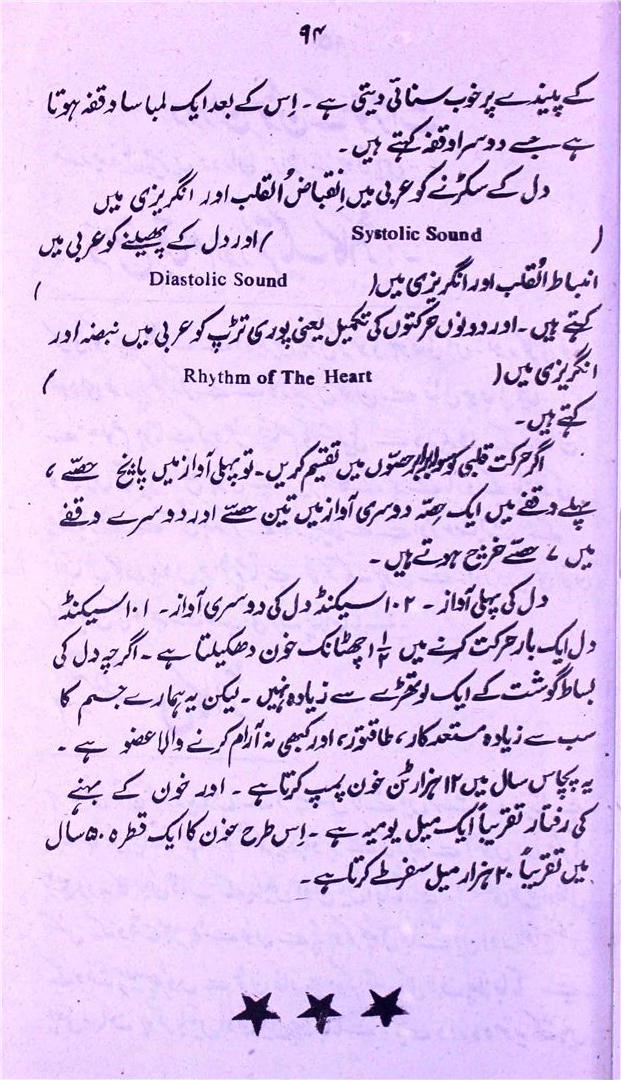 ۹۴
کے پیندے پر خوب سنائی دیتی ہے۔ اِس کے بعد ایک لمبا سا وقفہ ہوتا
ہے جسے دوسرا وقفہ کہتے ہیں۔
دل کے سکڑنے کو عربی میں اِنقباضُ القلب اور انگریزی میں
( Systolic Sound ) اور دل کے پھیلنے کو عربی میں
انبساط القلب اور انگریزی میں ( Diastolic Sound )
کہتے ہیں۔ اور دونوں حرکتوں کی تکمیل یعنی پوری تڑپ کو عربی میں نبضہ اور
انگریزی میں ( Rhythm of The Heart )
کہتے ہیں۔
اگر حرکت قلبی کو سولہ برابر حصّوں میں تقسیم کریں۔ تو پہلی آواز میں پانچ حصّے ،
پہلے وقفے میں ایک حِصّہ دوسری آواز میں تین حصّے اور دوسرے وقفے
میں ۷ حصّے خرچ ہوتے ہیں۔
دل کی پہلی آواز ۔ ۱۰۲ سیکنڈ دل کی دوسری آواز ۔ ۱۰۱ سیکنڈ
دل ایک بار حرکت کرنے میں ۱ ۱/۲ چھٹانک خون دھکیلتا ہے۔ اگرچہ دل کی
بساط گوشت کے ایک لوتھڑے سے زیادہ نہیں۔ لیکن یہ ہمارے جسم کا
سب سے زیادہ مستعد کار، طاقتور، اور کبھی نہ آرام کرنے والا عضو ہے۔
یہ پچاس سال میں ۱۲ ہزار ٹن خون پمپ کرتا ہے۔ اور خون کے بہنے
کی رفتار تقریباً ایک میل یومیہ ہے۔ اِس طرح خون کا ایک قطرہ ۵۰ سال
میں تقریباً ۲۰ ہزار میل سفر طے کرتا ہے۔